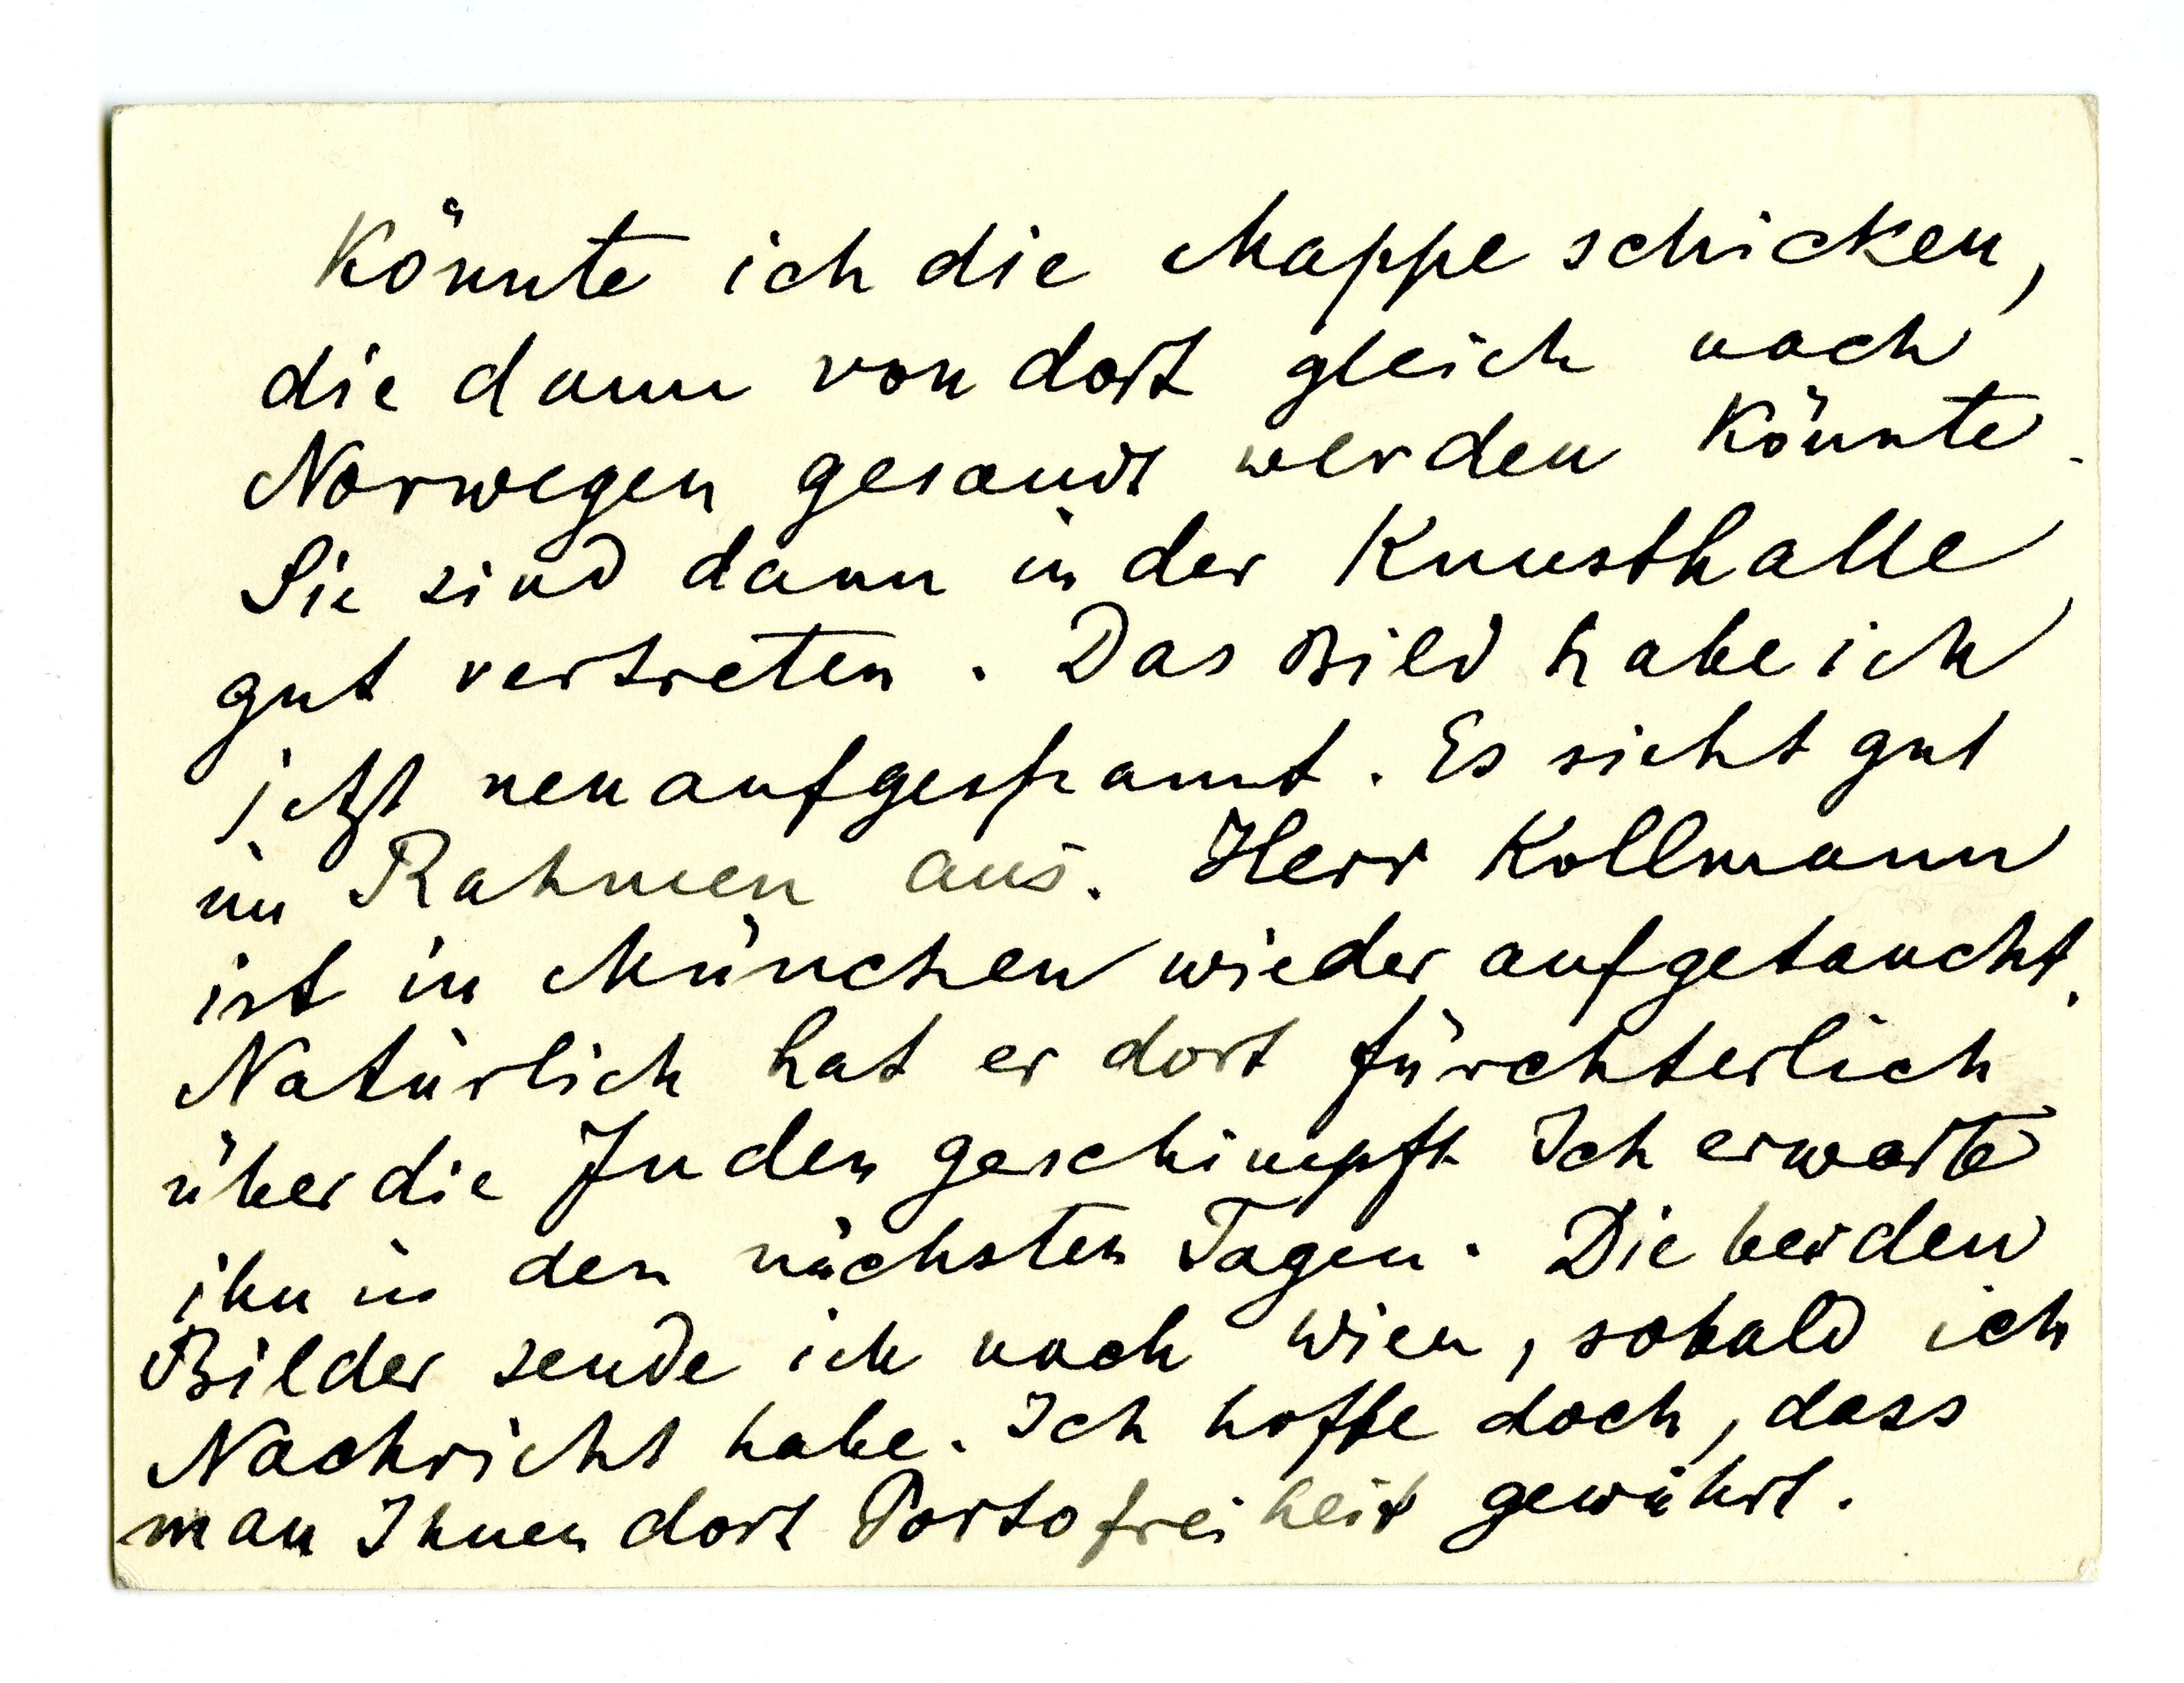 könnte ich die Mappe schicken,
die dann von dort gleich nach
Norwegen gesandt werden könnte.
Sie sind dann in der Kunsthalle
gut vertreten. Das Bild habe ich
jetzt neu aufgespannt. Es sieht gut
im Rahmen aus. Herr Kollmann
ist in München wieder aufgetaucht.
Natürlich hat er dort fürchterlich
über die Juden geschimpft Ich erwarte
ihn in den nächsten Tagen. Die beiden
Bilder sende ich nach Wien, sobald ich
Nachricht habe. Ich hoffe doch, dass
man Ihnen dort Portofreiheit gewährt.